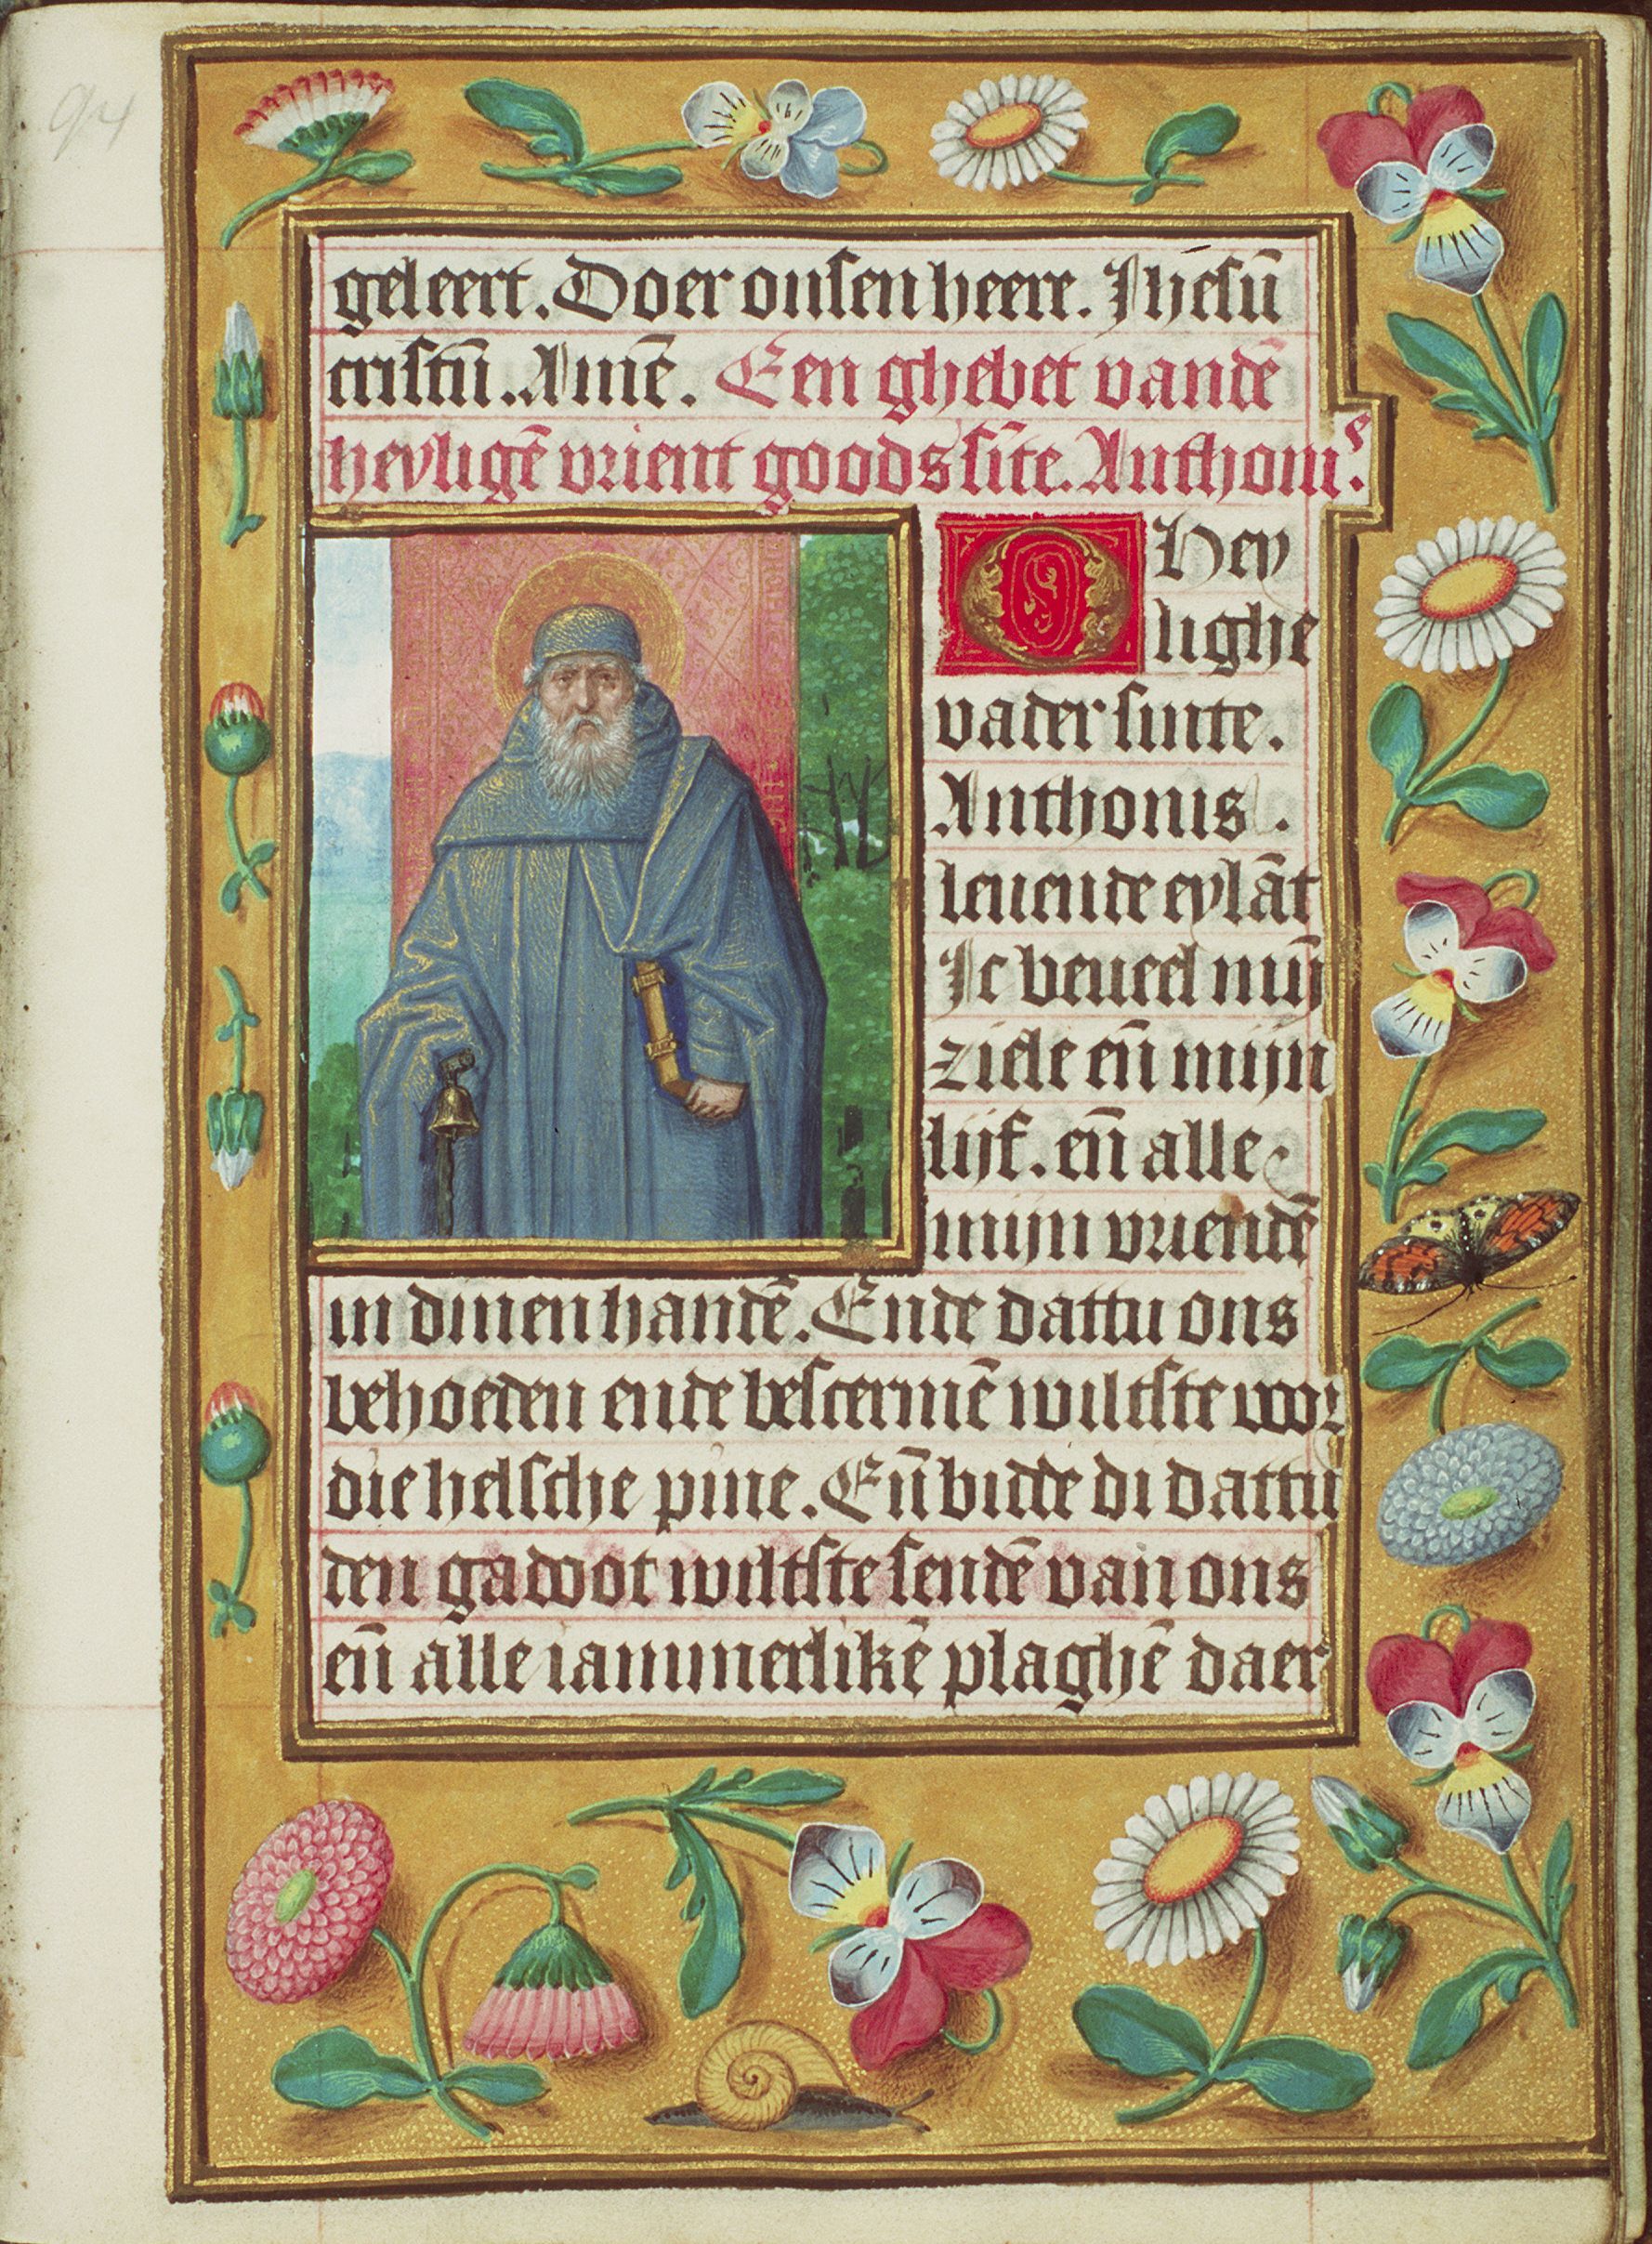 94
geleert. Doer onsen heere. Jhesū
cristū. Amē. Een ghebet vandē
heyligē vrient goods sīte. Anthoniꝰ.
O Hey
lighe
vader sinte.
Anthonis.
leuende eylāt
Ic beueel mijn
ziele eñ mijn
lijf. eñ alle
mijn vriendē
in dinen handē. Ende dattu ons
behoeden ende bescermē wiltste voor
die helsche pine. Eñ bidde di dattu
den gadoot wiltste sendē van ons
eñ alle iammerlikē plaghē daer